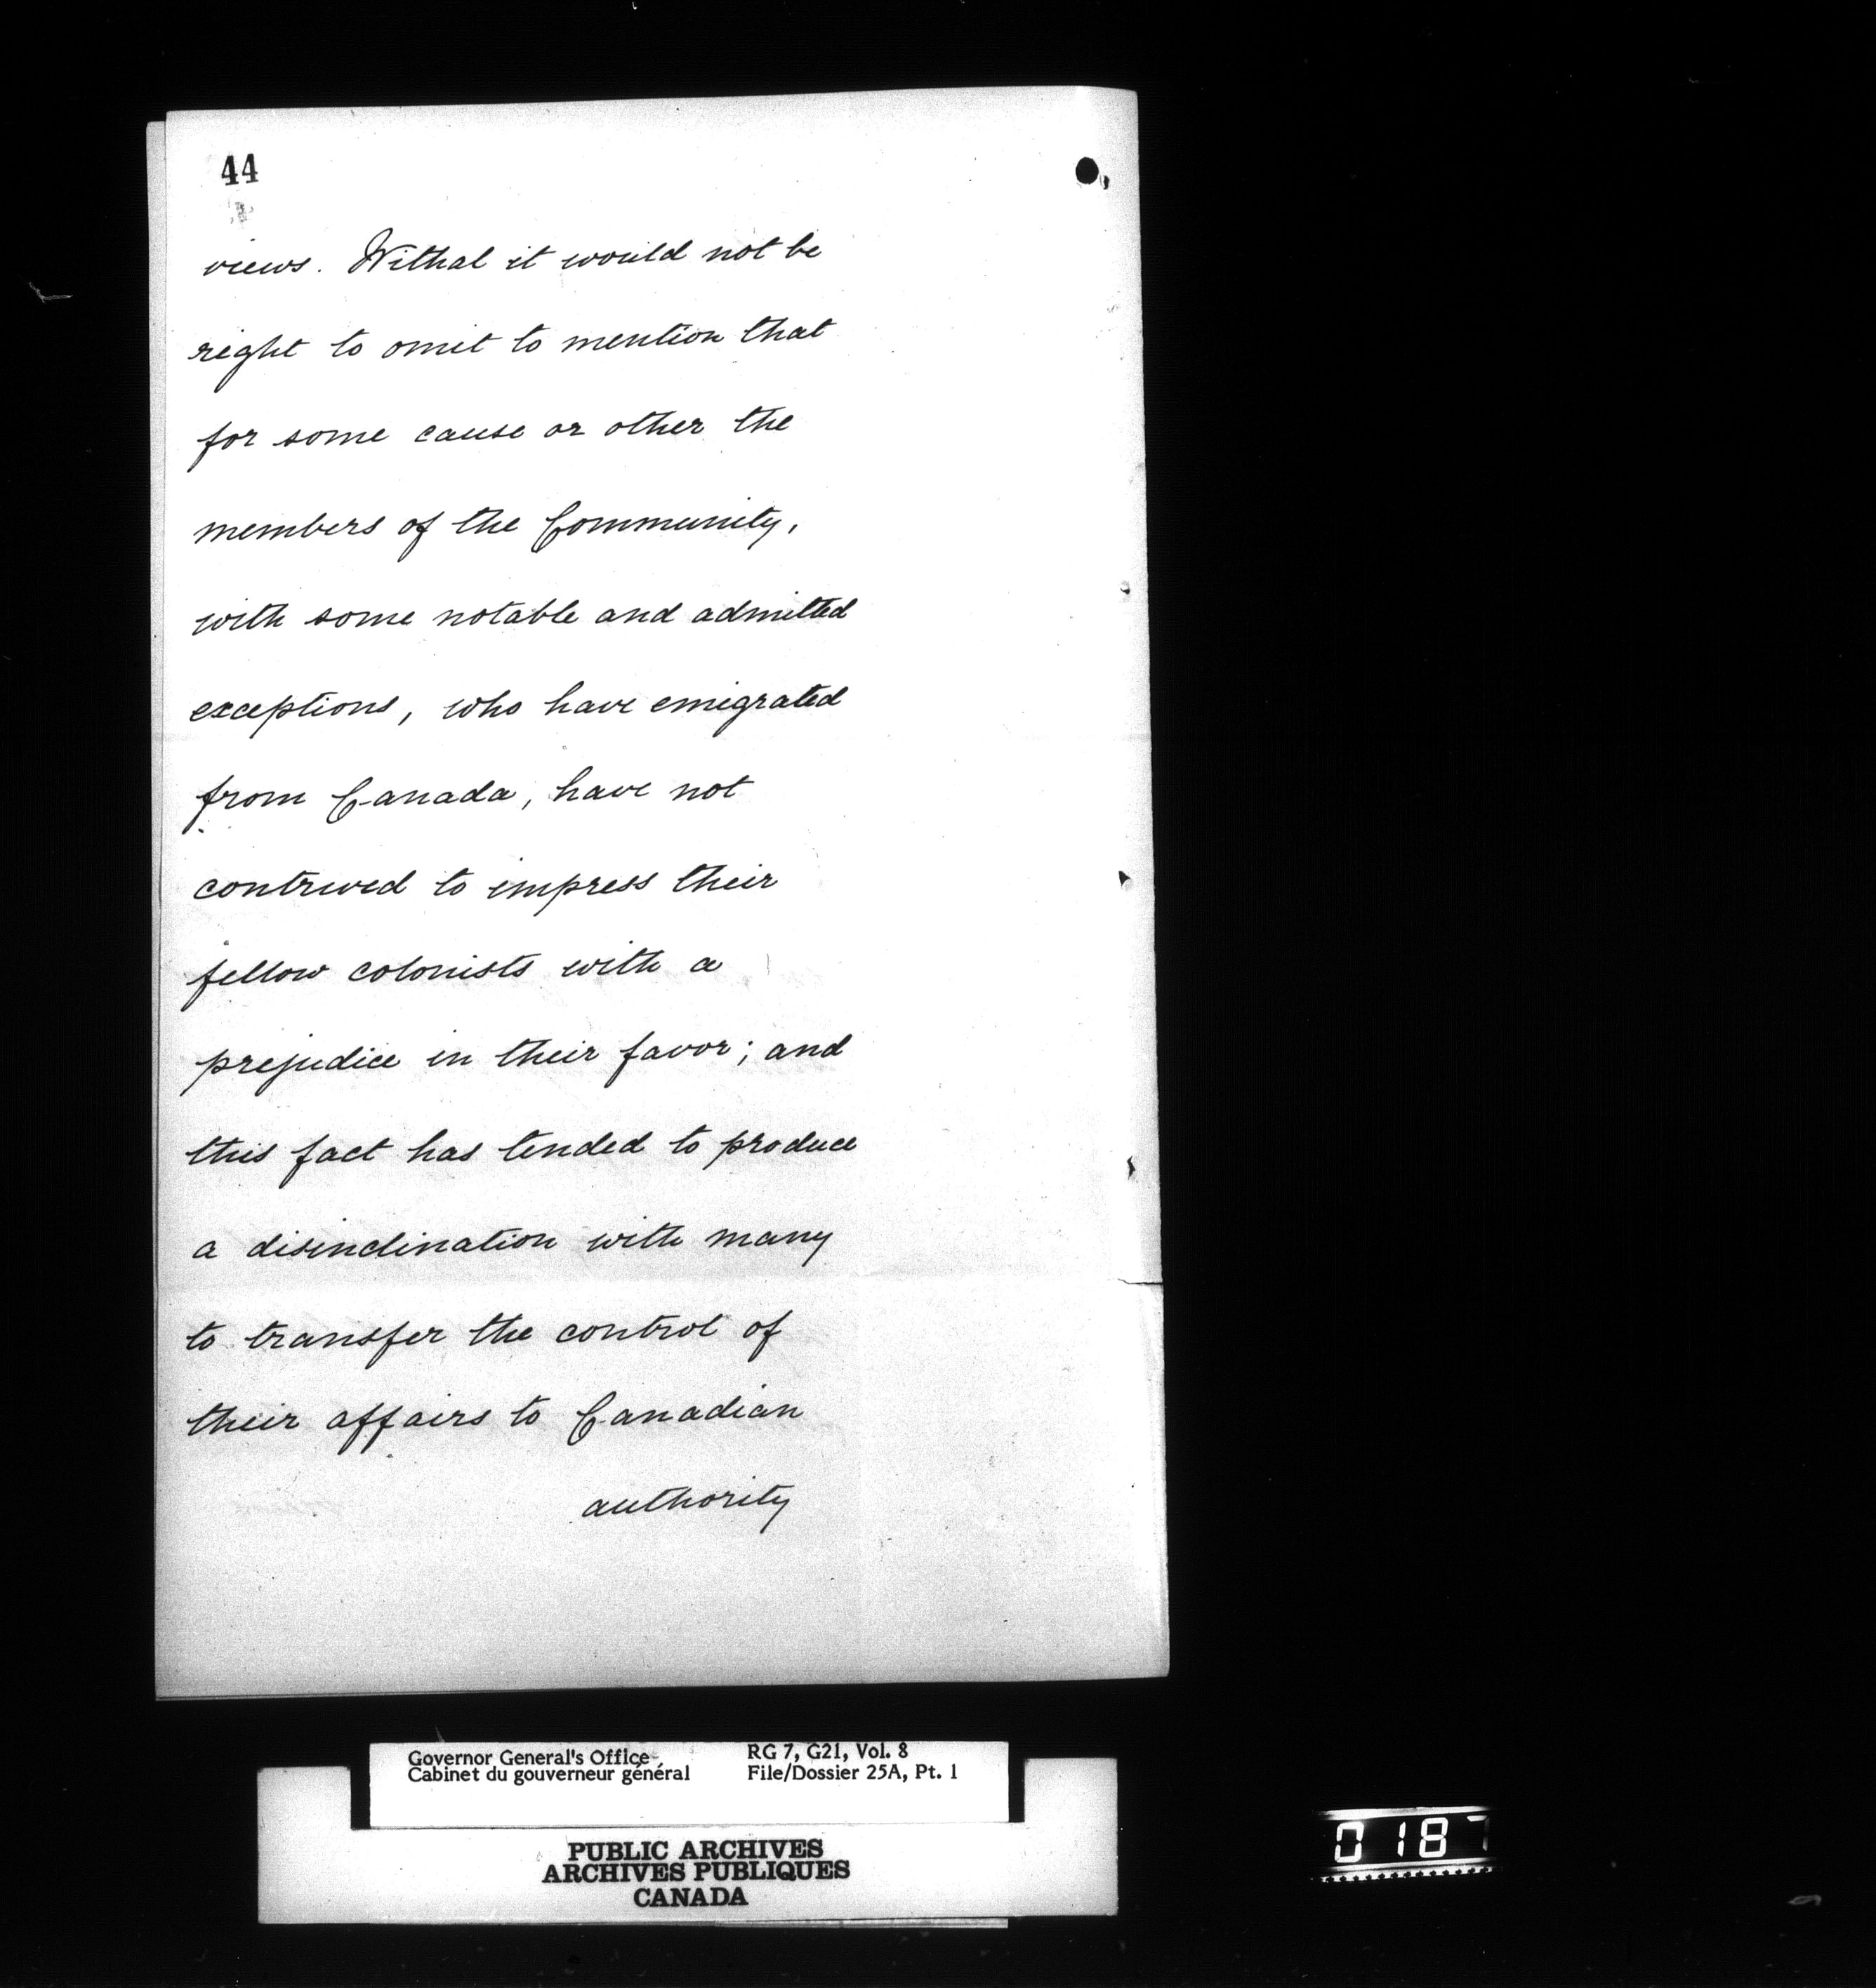 44
views. Withal it would not be
right to omit to mention that
for some cause or other the
members of the Community,
with some notable and admitted
exceptions, who have emigrated
from Canada, have not
contrived to impress their
fellow colonists with a
prejudice in their favor; and
this fact has tended to produce
a disinclination with many
to transfer the control of
their affairs to Canadian
authority
Governor General's Office RG 7, G21, Vol. 8
Cabinet du gouverneur général File/Dossier 25A, Pt. 1
PUBLIC ARCHIVES
ARCHIVES PUBLIQUES
CANADA
0187